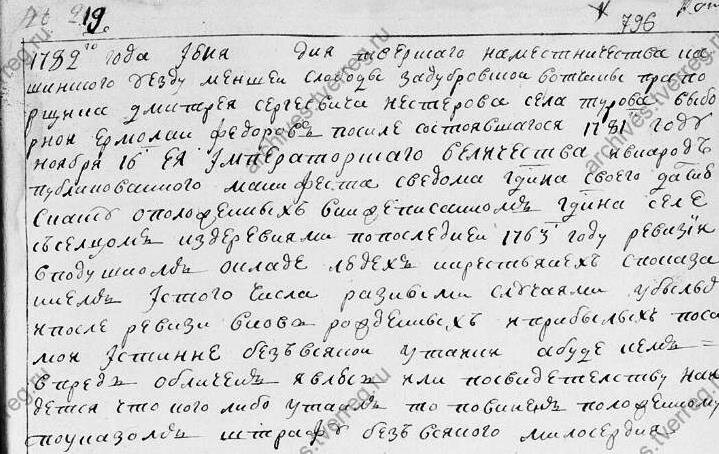 219.
796
1782 го года Июня дня тверскаго наместничества ка
шинского уезду меншеи слободы задубровскои вотчины прапо
рщика дмитрея сергеевича нестерова села турова выбо
рнои ермолаи федоровъ посиле состоявшагося 1781 году
ноября 16 ЕЯ Императорскаго величества внародъ
публикованного манифеста сведома гдина своего далъ сию
скаску оположенныхъ вышеписанномъ гдина селе
съселцомъ издеревнями попоследней 1763 году ревизіи
вподушномъ окладе людехъ икрестьянехъ споказа
ниемъ Истого числа разными случаями убылыхъ
ипосле ревизи вновь рожденныхъ иприбылыхъ поса
мои Истинне безъвсякои утаики абуде кемъ =
впредъ обличенъ явлюсь или посвидетелству наи
детса что кого либо утаилъ то повиненъ положенному
поуказомъ штрафу безъ всякого милосердия
archives.tverreg.ru